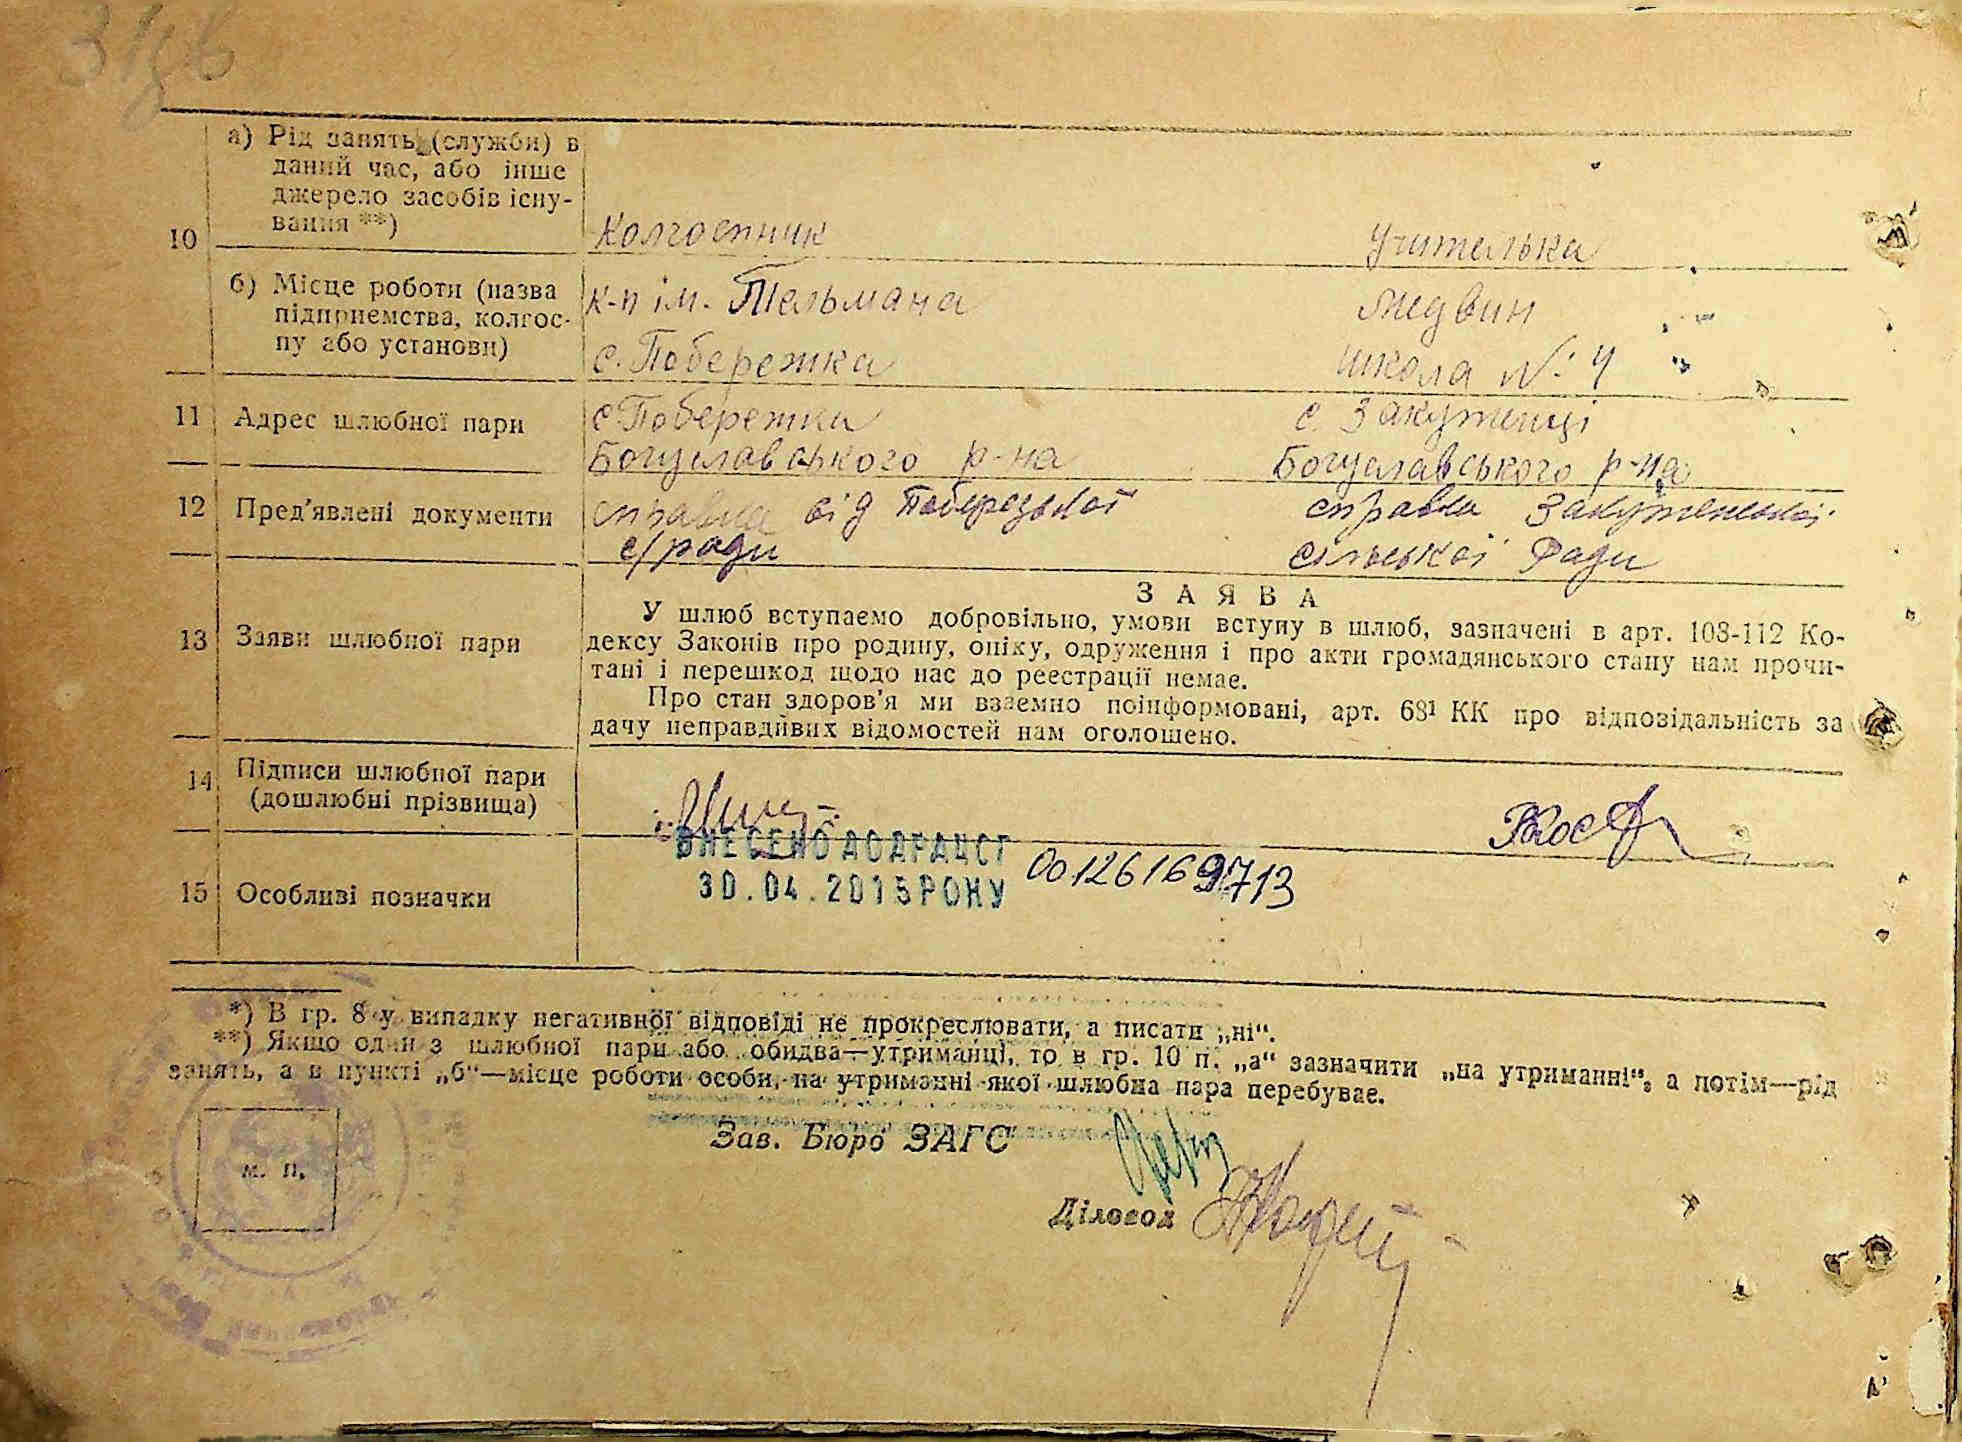 10
а) Рід занять (служби) в
даний час, або інше
джерело засобів існу-
вання **)
Колгоспник
Учителька
б) Місце роботи (назва
підприємства, колгос-
пу або установи)
к-п ім. Тельмана
с. Побережка
Медвин
школа №: 4
11
Адрес шлюбної пари
с. Побережка
Богуславського р-на
с. Закутенці
Богуславського р-на
12
Пред'явлені документи
справка від Поберезької
с/ради
справка Закутенської
сільської Ради
13
Заяви шлюбної пари
ЗАЯВА
У шлюб вступаємо добровільно, умови вступу в шлюб, зазначені в арт. 108-112 Ко-
дексу Законів про родину, опіку, одруження і про акти громадянського стану нам прочи-
тані і перешкод щодо нас до реєстрації немає.
Про стан здоров'я ми взаємно поінформовані, арт. 68¹ КК про відповідальність за
дачу неправдивих відомостей нам оголошено.
14
Підписи шлюбної пари
(дошлюбні прізвища)
15
Особливі позначки
ВНЕСЕНО ДО ДРАЦСГ
30.04.2015 РОКУ
00126169713
*) В гр. 8 у випадку негативної відповіді не прокреслювати, а писати „ні“.
**) Якщо один з шлюбної пари або обидва—утриманці, то в гр. 10 п. „а“ зазначити „на утриманні“, а потім—рід
занять, а в пункті „б“—місце роботи особи, на утриманні якої шлюбна пара перебуває.
м. п.
Зав. Бюро ЗАГС
Діловод